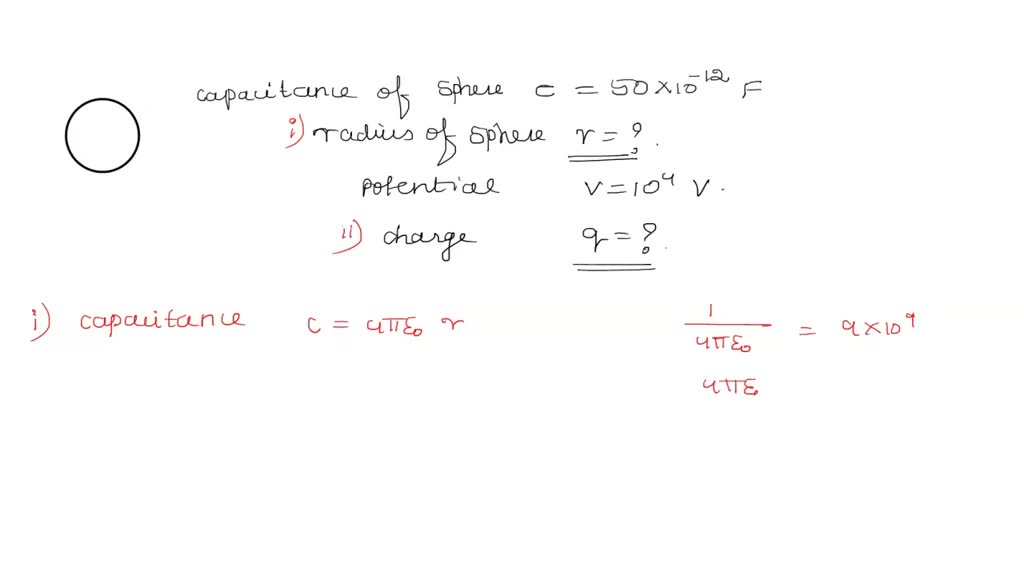 capacitance of sphere c = 50×10⁻¹² F
i) radius of sphere r = ?.
potential v = 10⁴ V.
ii) charge q = ?.
i) capacitance c = 4πε₀ r
1/4πε₀ = 9×10⁹
4πε